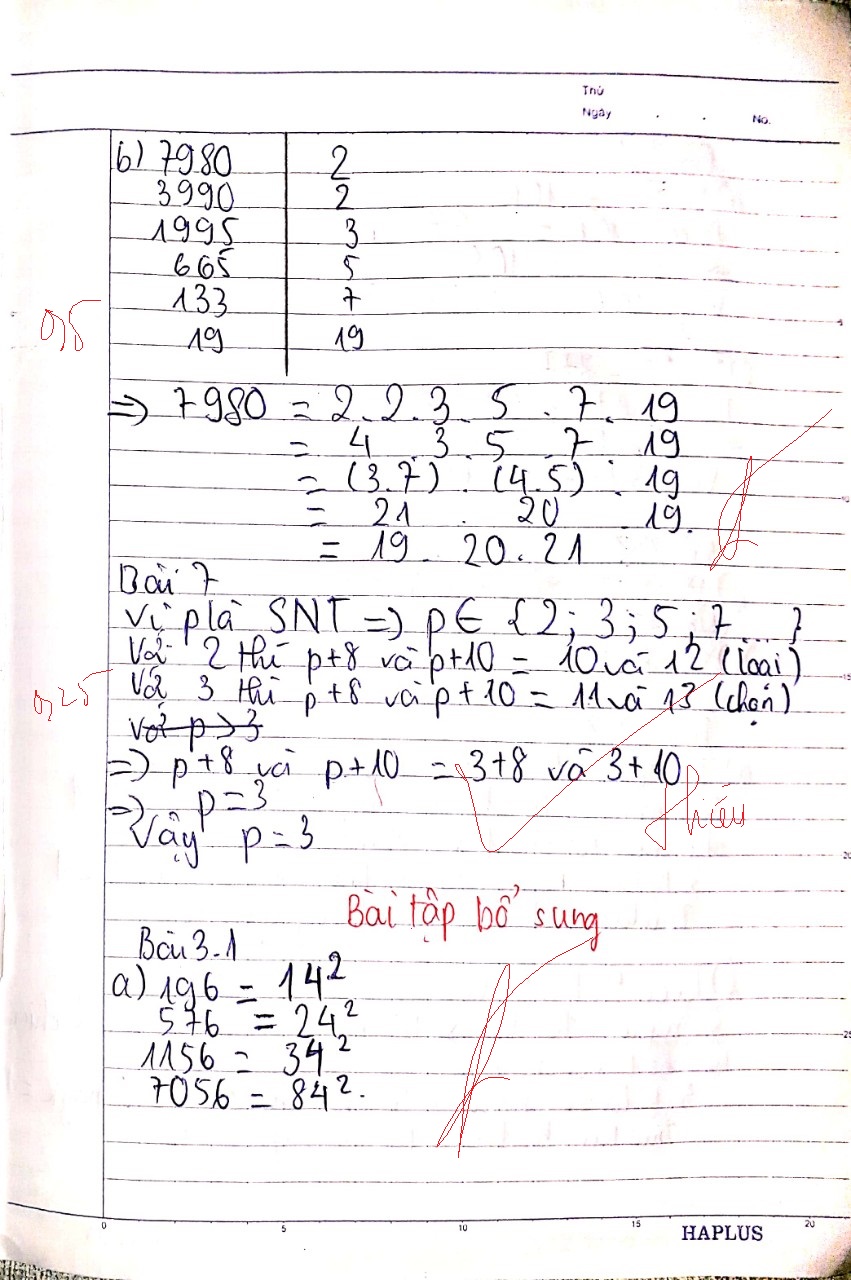 Thứ
Ngày . . No.
b) 7980 | 2
3990 | 2
1995 | 3
665 | 5
133 | 7
19 | 19
0,5
=> 7980 = 2.2.3.5.7.19
= 4.3.5.7.19
= (3.7).(4.5).19
= 21.20.19.
= 19.20.21
Bài 7
Vì p là SNT => p∈ {2; 3; 5; 7....}
Với 2 thì p+8 và p+10 = 10 và 12 (loại)
0,25
Với 3 thì p+8 và p+10 = 11 và 13 (chọn)
với p > 3
=> p+8 và p+10 = 3+8 và 3+10
=> p = 3
thiếu
Vậy p = 3
Bài tập bổ sung
Bài 3.1
a) 196 = 14²
576 = 24²
1156 = 34²
7056 = 84².
0 5 10 15 20
HAPLUS